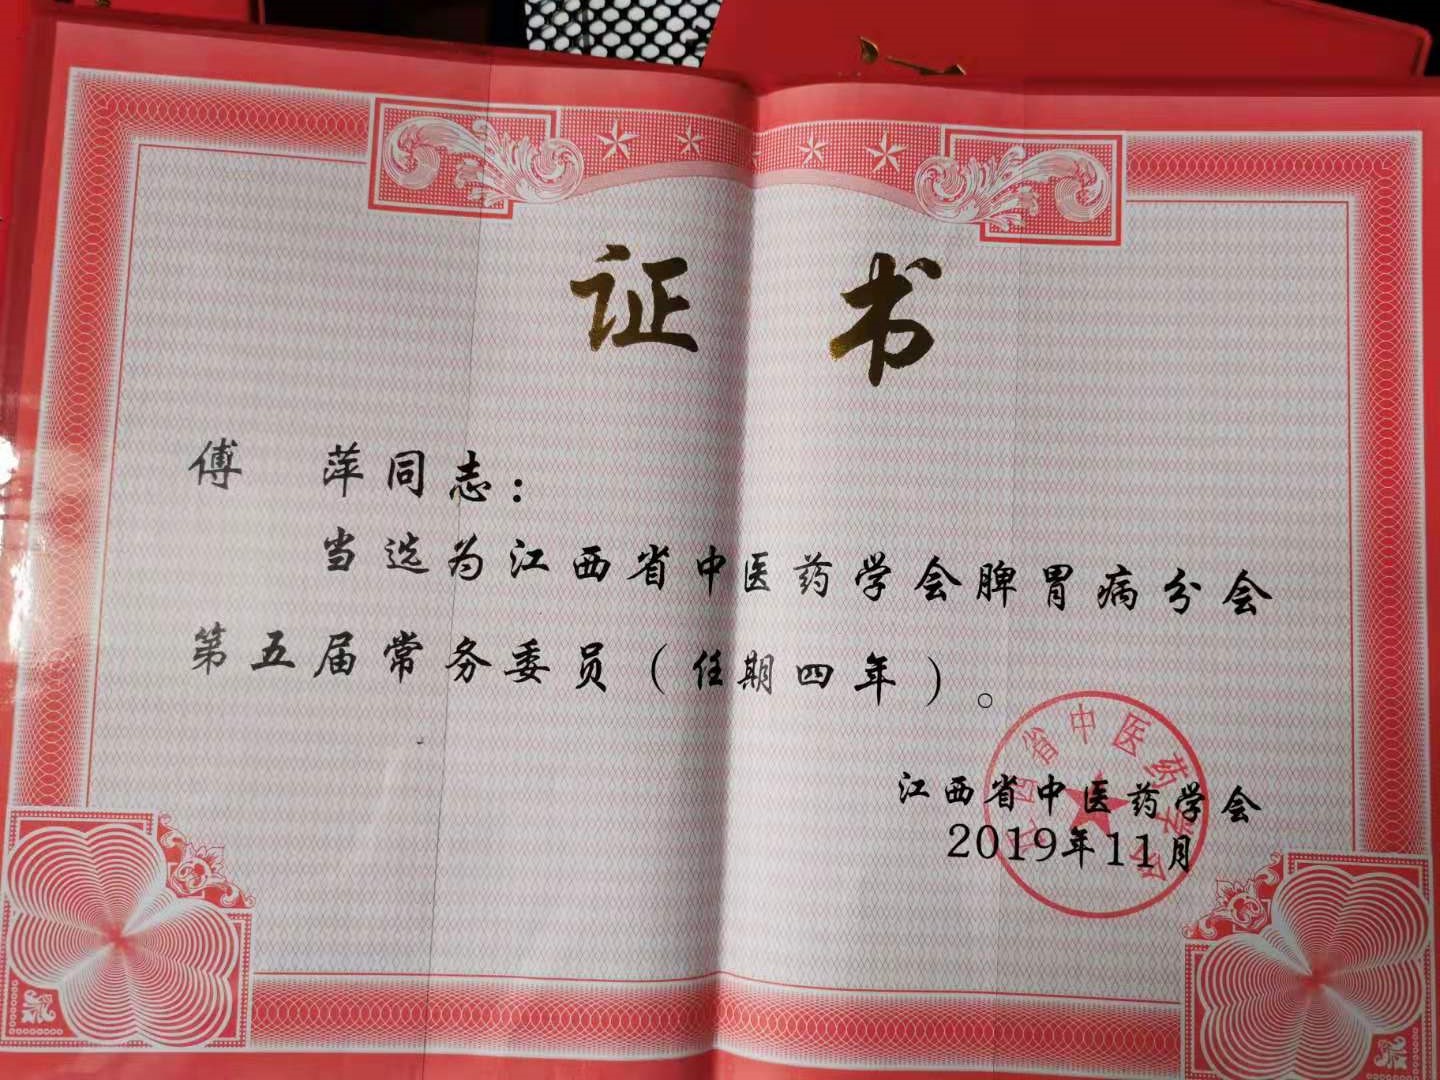 证 书
傅 萍同志：
当选为江西省中医药学会脾胃病分会
第五届常务委员（任期四年）。
江西省中医药学会
2019年11月
江西省中医药学会